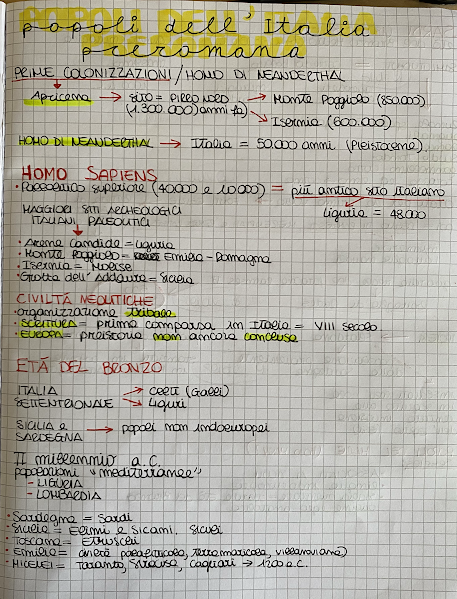 popoli dell'Italia
preromana
PRIME COLONIZZAZIONI/HOMO DI NEANDERTHAL
Apricena → sito = PIRRO NORD → Monte Poggiolo (850.000)
(1.300.000) anni fa) → Isernia (600.000)
HOMO DI NEANDERTHAL → Italia = 50.000 anni (Pleistocene).
HOMO SAPIENS
• Paleolitico superiore (40000 e 10000) = più antico sito italiano
MAGGIORI SITI ARCHEOLOGICI
Liguria = 48.000
ITALIANI PALEOLITICI
• Arene candide = Liguria
• Monte Poggiolo = Emilia-Romagna
• Isernia = Molise
• Grotta dell'Addaura = Sicilia
CIVILTÀ NEOLITICHE
• organizzazione tribale
• SCRITTURA = prima comparsa in Italia = VIII secolo.
• EUROPA = preistoria non ancora conclusa
ETÀ DEL BRONZO
ITALIA → celti (Galli)
SETTENTRIONALE → Liguri
SICILIA e
SARDEGNA → popoli non indoeuropei
II millennio a.C.
popolazioni "mediterranee"
- LIGURIA
- LOMBARDIA
• Sardegna = Sardi
• Sicilia = Elimi e Sicani, Siculi
• Toscana = Etruschi
• Emilia = civiltà palafitticola, terramaricola, villanoviana)
• MICENEI = Taranto, Siracusa, Cagliari → 1200 a.C.